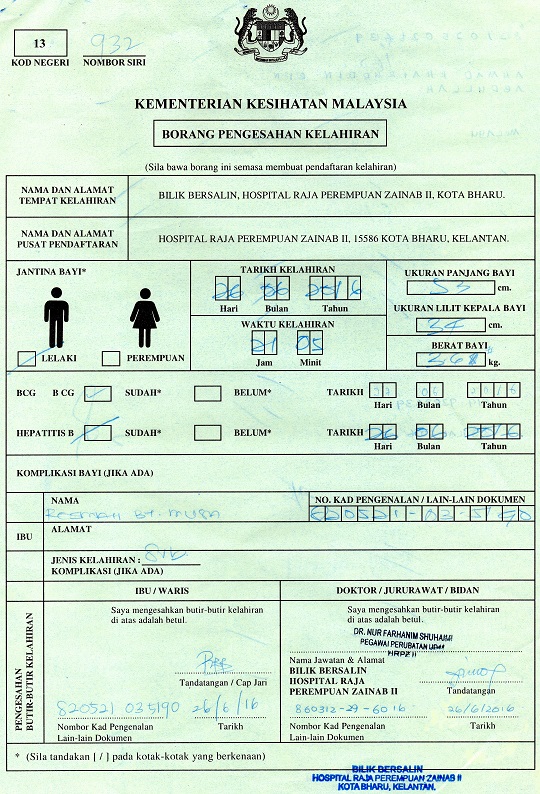 13
932
KOD NEGERI NOMBOR SIRI
KEMENTERIAN KESIHATAN MALAYSIA
BORANG PENGESAHAN KELAHIRAN
(Sila bawa borang ini semasa membuat pendaftaran kelahiran)
NAMA DAN ALAMAT
TEMPAT KELAHIRAN
BILIK BERSALIN, HOSPITAL RAJA PEREMPUAN ZAINAB II, KOTA BHARU.
NAMA DAN ALAMAT
PUSAT PENDAFTARAN
HOSPITAL RAJA PEREMPUAN ZAINAB II, 15586 KOTA BHARU, KELANTAN.
JANTINA BAYI*
LELAKI PEREMPUAN
TARIKH KELAHIRAN
26 06 2016
Hari Bulan Tahun
WAKTU KELAHIRAN
21 05
Jam Minit
UKURAN PANJANG BAYI
53 cm.
UKURAN LILIT KEPALA BAYI
34 cm.
BERAT BAYI
3.68 kg.
BCG B CG SUDAH* BELUM* TARIKH 27 06 2016
Hari Bulan Tahun
HEPATITIS B SUDAH* BELUM* TARIKH 26 06 2016
Hari Bulan Tahun
KOMPLIKASI BAYI (JIKA ADA)
IBU
NAMA
BT. MUSA
NO. KAD PENGENALAN / LAIN-LAIN DOKUMEN
820521-03-5190
ALAMAT
JENIS KELAHIRAN :
KOMPLIKASI (JIKA ADA)
PENGESAHAN
BUTIR-BUTIR KELAHIRAN
IBU / WARIS
Saya mengesahkan butir-butir kelahiran
di atas adalah betul.
Tandatangan / Cap Jari
820521 035190 26/6/16
Nombor Kad Pengenalan Tarikh
Lain-lain Dokumen
DOKTOR / JURURAWAT / BIDAN
Saya mengesahkan butir-butir kelahiran
di atas adalah betul.
DR. NUR FARHANIM SHUHAIMI
PEGAWAI PERUBATAN
HRPZ II
Nama Jawatan & Alamat
BILIK BERSALIN
HOSPITAL RAJA
PEREMPUAN ZAINAB II
Tandatangan
860312-29-6016 26/6/2016
Nombor Kad Pengenalan Tarikh
Lain-lain Dokumen
* (Sila tandakan [ / ] pada kotak-kotak yang berkenaan)
BILIK BERSALIN
HOSPITAL RAJA PEREMPUAN ZAINAB II
KOTA BHARU, KELANTAN.